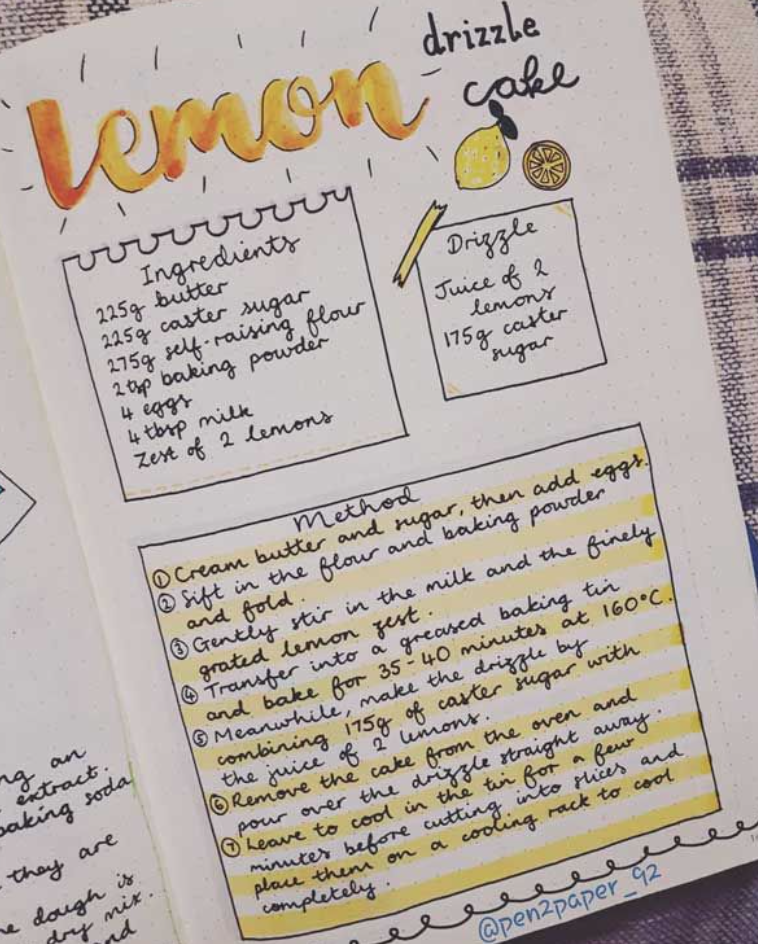 lemon
drizzle
cake
Ingredients
225g butter
225g caster sugar
275g self-raising flour
2 tsp baking powder
4 eggs
4 tbsp milk
Zest of 2 lemons
Drizzle
Juice of 2
lemons
175g caster
sugar
Method
① Cream butter and sugar, then add eggs.
② Sift in the flour and baking powder
and fold.
③ Gently stir in the milk and the finely
grated lemon zest.
④ Transfer into a greased baking tin
and bake for 35-40 minutes at 160°C.
⑤ Meanwhile, make the drizzle by
combining 175g of caster sugar with
the juice of 2 lemons.
⑥ Remove the cake from the oven and
pour over the drizzle straight away.
⑦ Leave to cool in the tin for a few
minutes before cutting into slices and
place them on a cooling rack to cool
completely.
@pen2paper_92
an
extract.
baking soda
they are
dough is
dry mix.